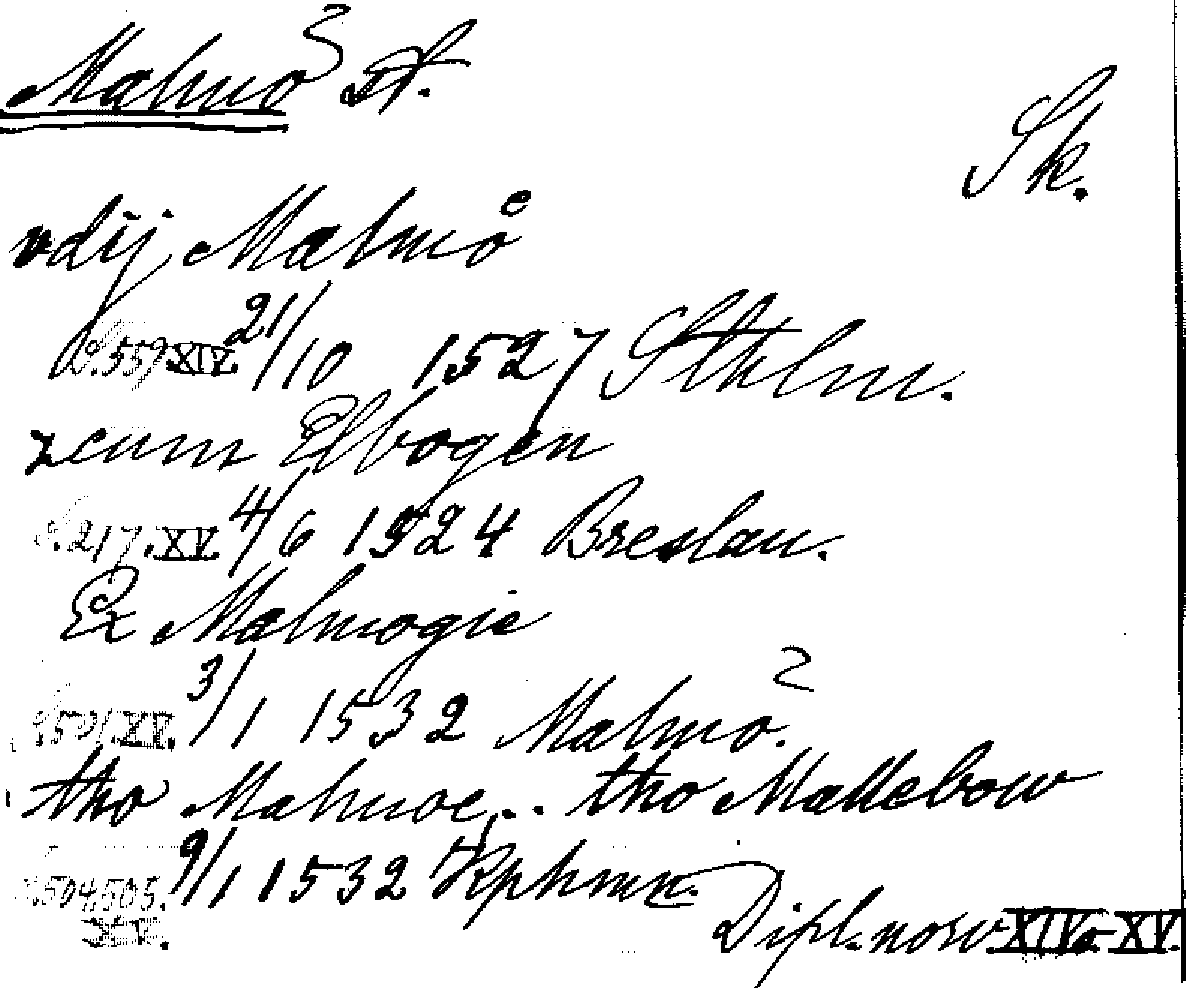 Malmö St.
Sk.
vdij Malmoͤ
S. 559. XIV. 21/10 1527 Sthlm.
zcum Elbogen
S. 217. XV. 4/6 1524 Breslau.
Ex Malmogie
S. 501. XV. 3/1 1532 Malmö.
tho Malmoe,.. tho Mallebow
S. 504, 505. 9/1 1532 Kphmn.
XV.
Dipl. norv XIV o XV.